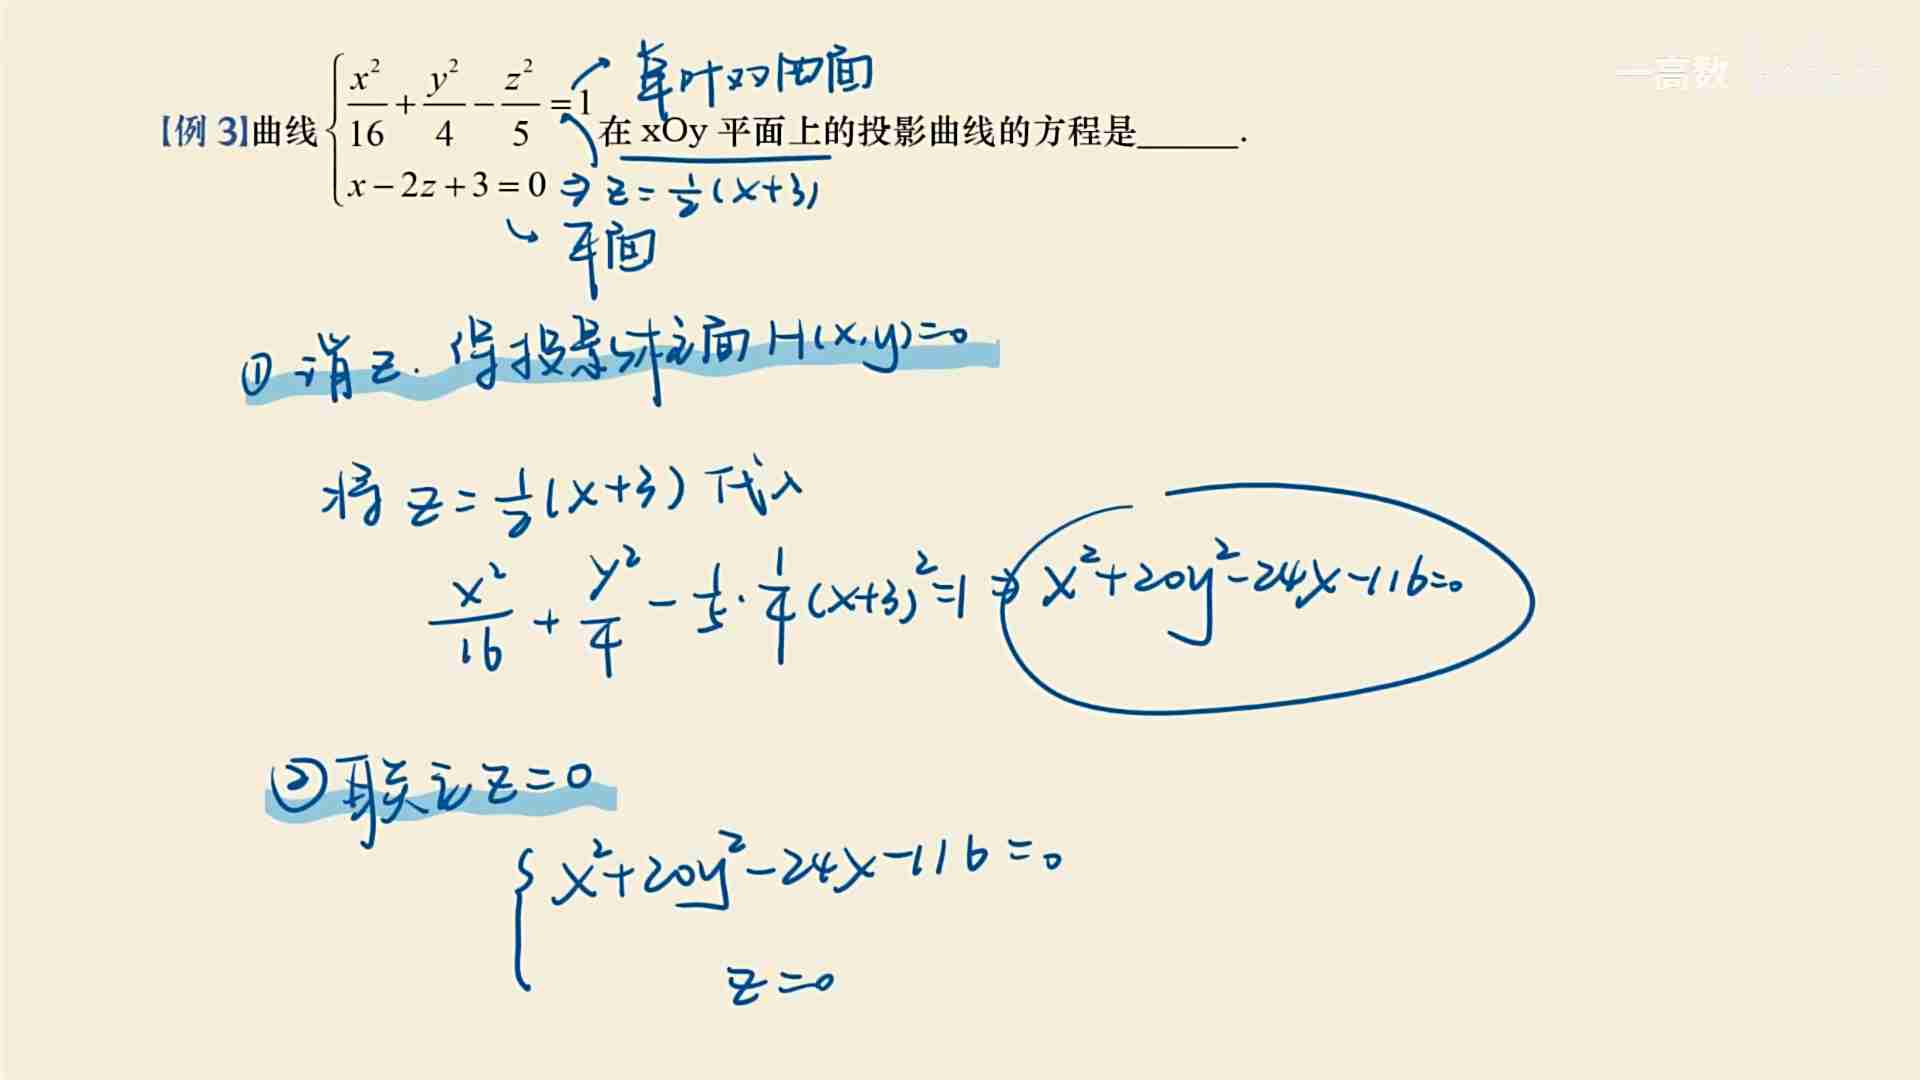 一高数
【例 3】曲线 { x²/16 + y²/4 − z²/5 = 1 在 xOy 平面上的投影曲线的方程是______.
x − 2z + 3 = 0
单叶双曲面
⇒ z = ½(x+3)
平面
① 消z. 得投影柱面 H(x,y)=0
将 z = ½(x+3) 代入
x²/16 + y²/4 − 1/5 · 1/4 (x+3)² = 1 ⇒ x²+20y²−24x−116=0
② 联立 z=0
{ x²+20y²−24x−116=0
z=0